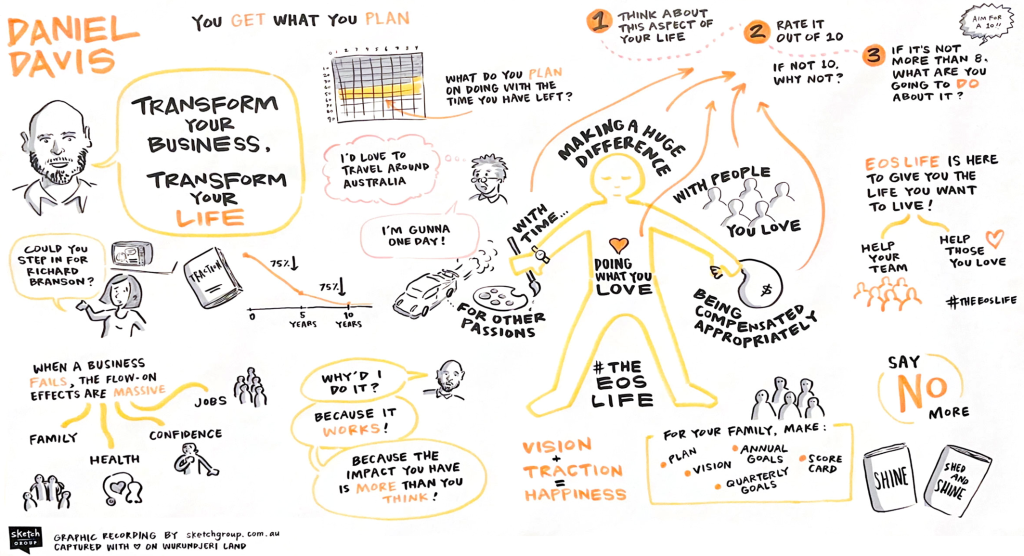 DANIEL
DAVIS
YOU GET WHAT YOU PLAN
TRANSFORM
YOUR
BUSINESS.
TRANSFORM
YOUR
LIFE
WHAT DO YOU PLAN
ON DOING WITH THE
TIME YOU HAVE LEFT?
I'D LOVE TO
TRAVEL AROUND
AUSTRALIA
I'M GUNNA
ONE DAY!
COULD YOU
STEP IN FOR
RICHARD
BRANSON?
TRACTION
75%↓
75%↓
0
5
YEARS
10
YEARS
WHEN A BUSINESS
FAILS, THE FLOW-ON
EFFECTS ARE MASSIVE
JOBS
FAMILY
HEALTH
CONFIDENCE
WHY'D I
DO IT?
BECAUSE IT
WORKS!
BECAUSE THE
IMPACT YOU HAVE
IS MORE THAN YOU
THINK!
1 THINK ABOUT
THIS ASPECT OF
YOUR LIFE
2 RATE IT
OUT OF 10
IF NOT 10,
WHY NOT?
AIM FOR
A 10!!
3 IF IT'S NOT
MORE THAN 8,
WHAT ARE YOU
GOING TO DO
ABOUT IT?
MAKING A HUGE
DIFFERENCE
WITH PEOPLE
YOU LOVE
WITH
TIME...
FOR OTHER
PASSIONS
DOING
WHAT YOU
LOVE
$
BEING
COMPENSATED
APPROPRIATELY
#THE
EOS
LIFE
EOS LIFE IS HERE
TO GIVE YOU THE
LIFE YOU WANT
TO LIVE!
HELP
YOUR
TEAM
HELP
THOSE
YOU LOVE
#THEEOSLIFE
VISION
+
TRACTION
=
HAPPINESS
FOR YOUR FAMILY, MAKE:
• PLAN
• VISION
• ANNUAL
GOALS
• QUARTERLY
GOALS
• SCORE
CARD
SAY
NO
MORE
SHINE
SHED
AND
SHINE
sketch
GROUP
GRAPHIC RECORDING BY sketchgroup.com.au
CAPTURED WITH ♡ ON WURUNDJERI LAND